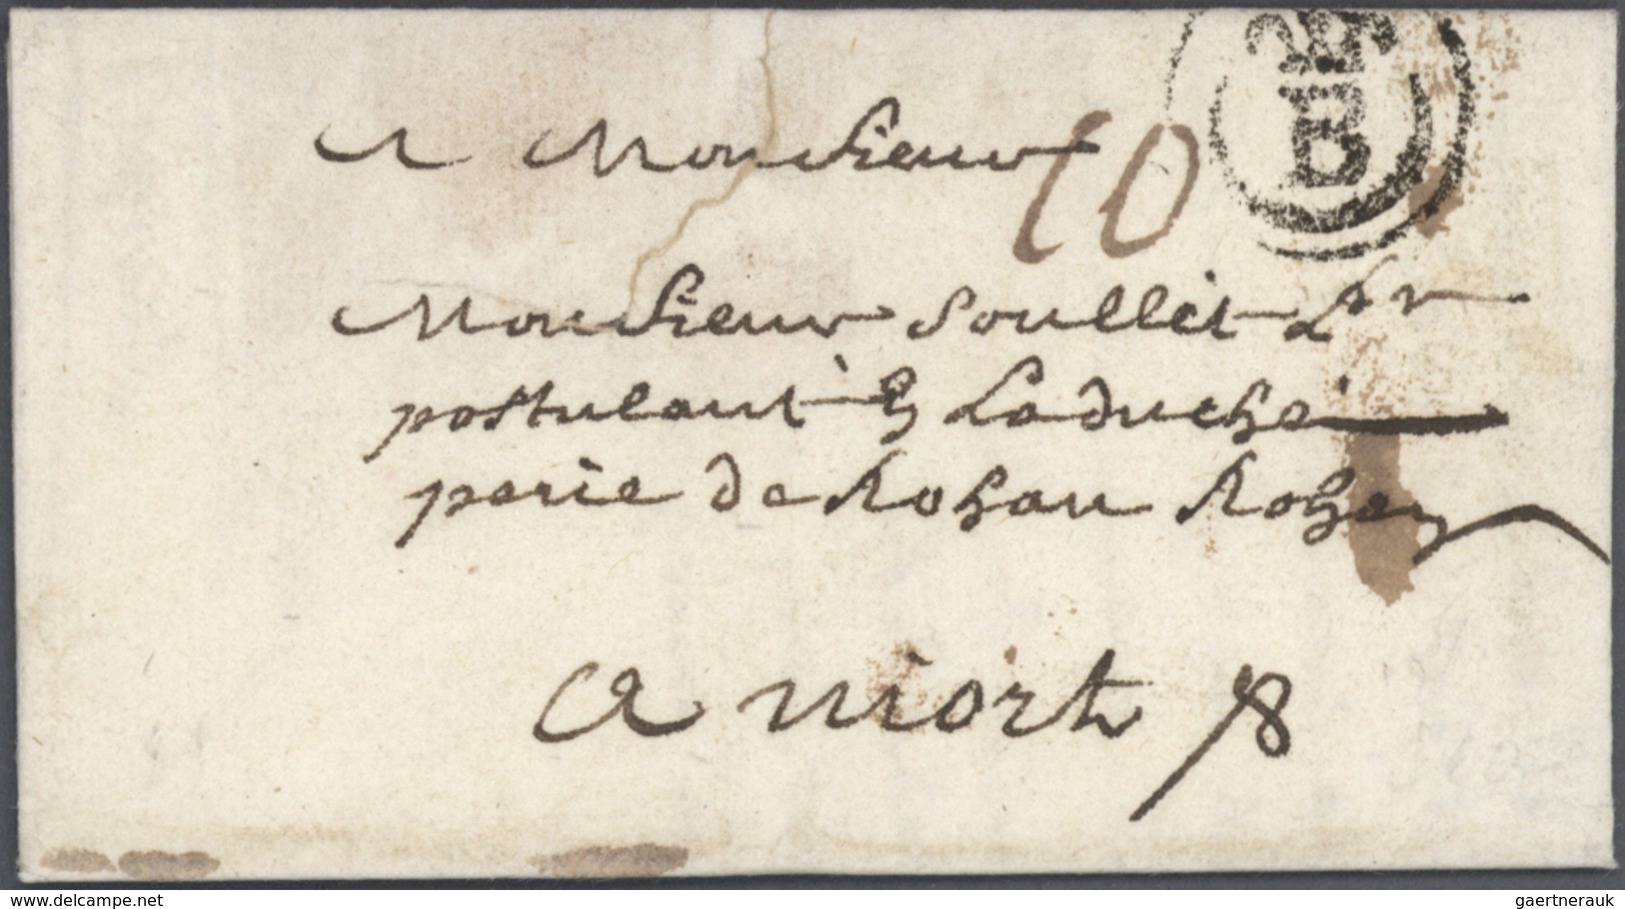 A Monsieur
10
B
Monsieur Soullet
postulant à La duche
perie de Rohan Rohan
a niort
delcampe.net
gaertnerauk